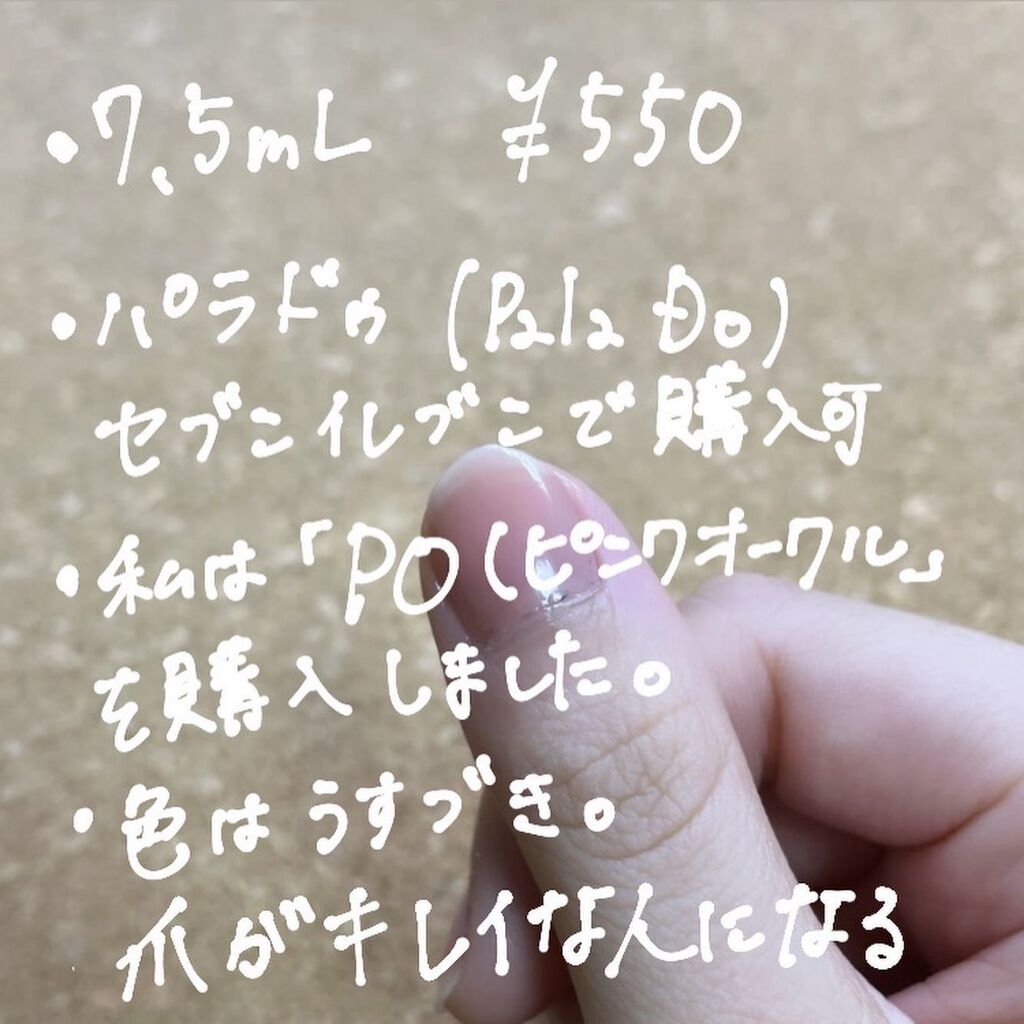 ・7.5mL ¥550
・パラドゥ (Pala Do)
セブンイレブンで購入可
・私は「PO(ピンクオークル」
を購入しました。
・色はうすづき。
爪がキレイな人になる